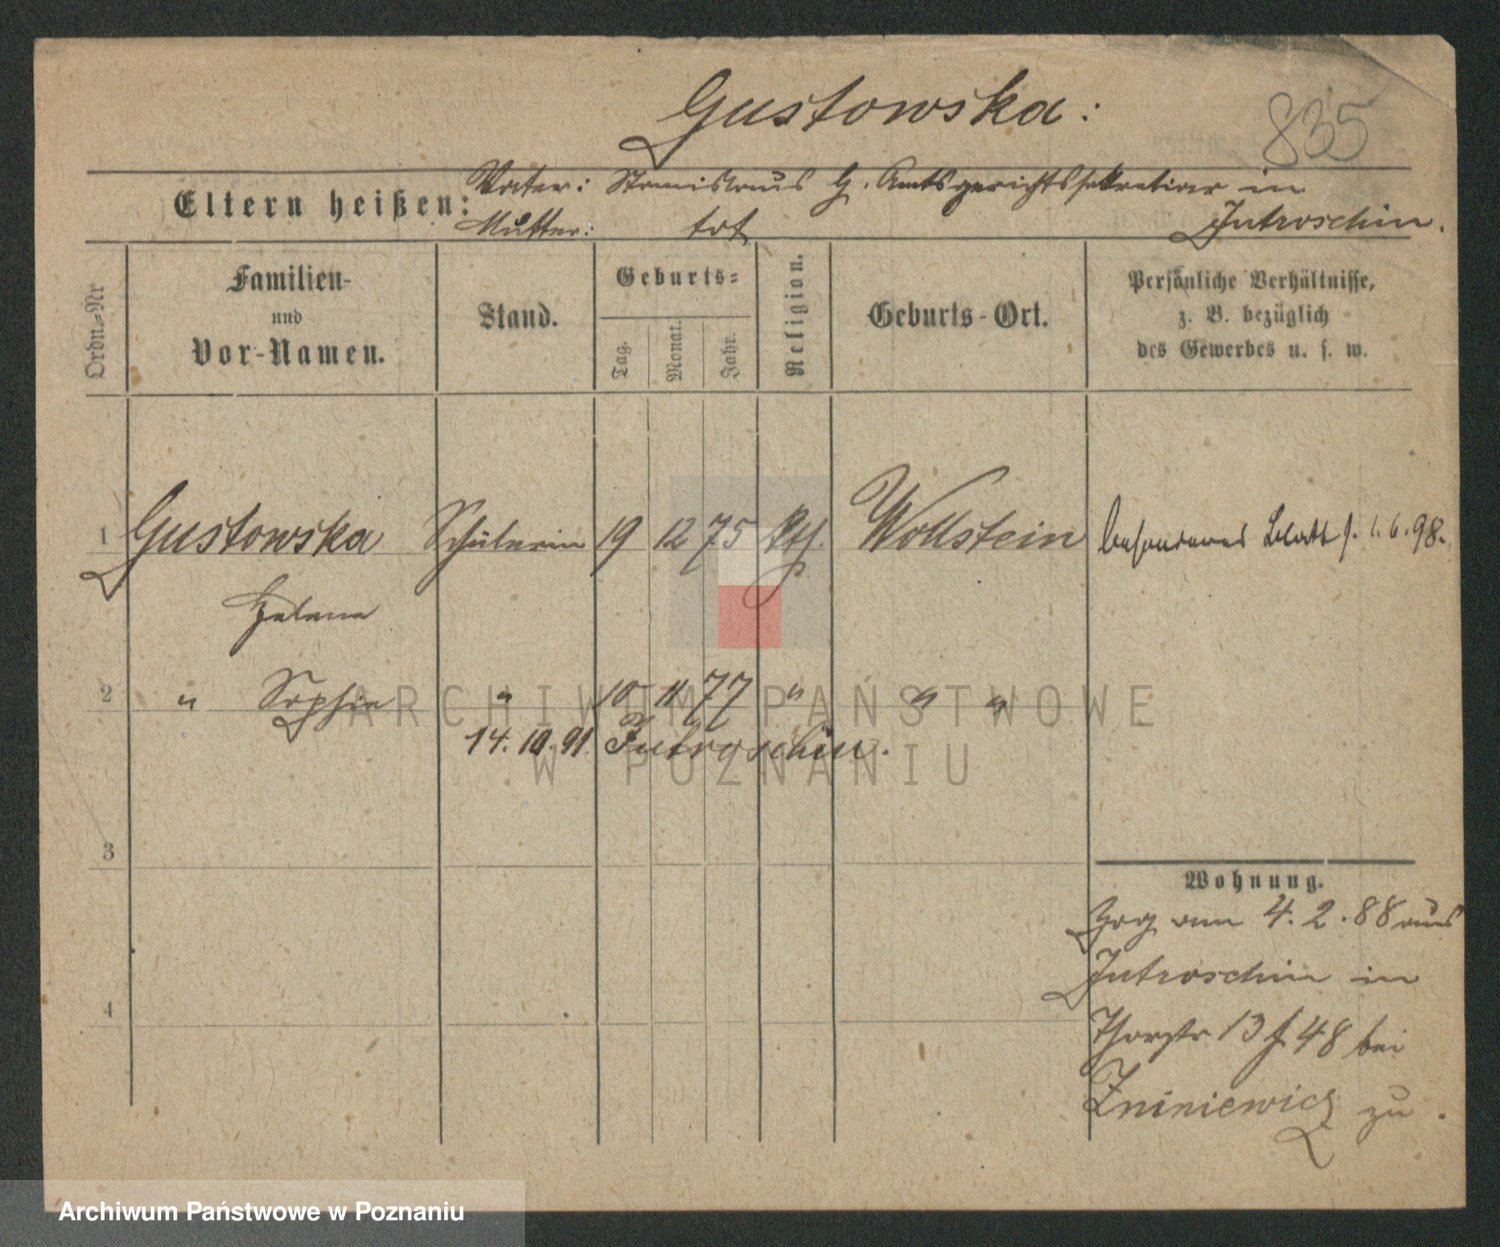 Gustowska:
835
Eltern heißen:
Vater: Stanislaus G. Amtsgerichtssekretiar in
Jutroschin.
Mutter: tot
Ordn.-Nr
Familien-
und
Vor-Namen.
Stand.
Geburts-
Tag.
Monat.
Jahr.
Religion.
Geburts-Ort.
Persönliche Verhältnisse,
z. B. bezüglich
des Gewerbes u. s. w.
1 Gustowska Schülerin 19 12 75 kth. Wollstein besonderes Blatt s. 1.6.98.
Helene
2 " Sophie " 10 11 77 " " "
14. 10. 91. Jutroschin.
3
Wohnung.
Zog am 4.2.88 aus
Jutroschin in
4
Thorstr 13 f 48 bei
Zniniewicz zu.
ARCHIWUM PAŃSTWOWE
W POZNANIU
Archiwum Państwowe w Poznaniu